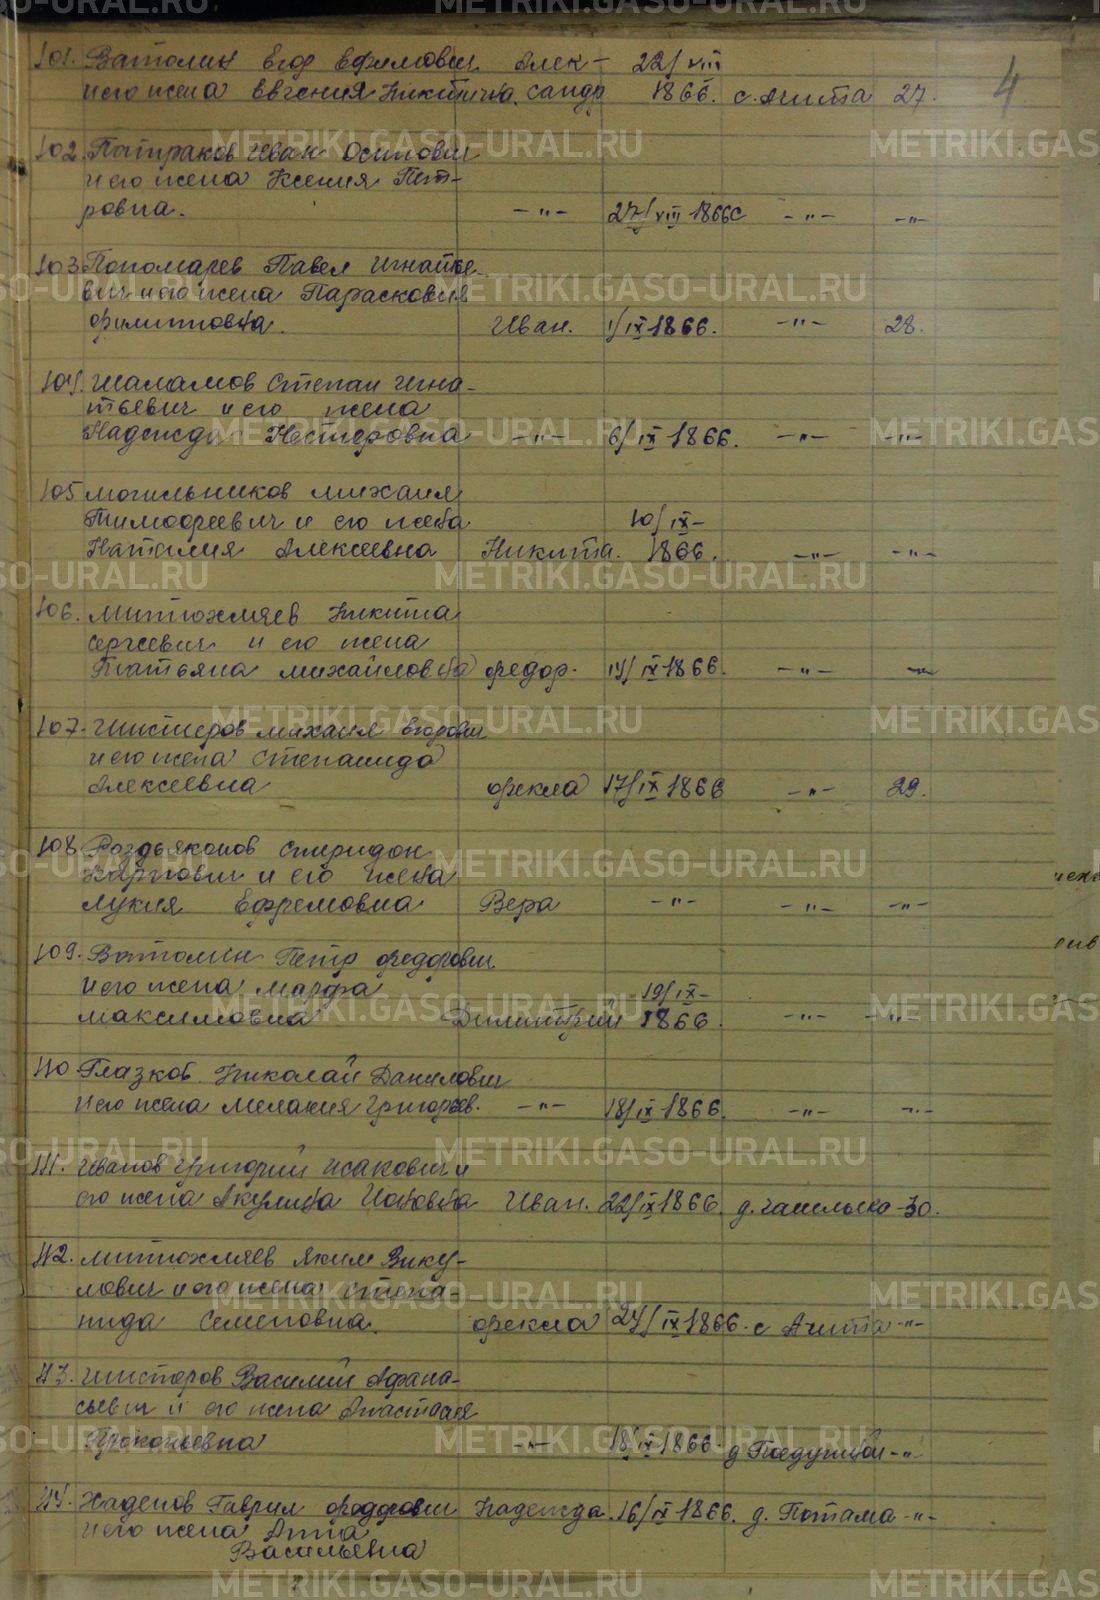 4
101. Ватолин Егор Ефимович Алек- 22/VIII
и его жена Евгения Никитична. сандр 1866. с. Ачита 27.
102. Патраков Иван Осипович
и его жена Ксения Пет-
ровна. -"- 27/VIII 1866 -"- -"-
103. Пономарев Павел Игнатье-
вич и его жена Парасковия
Филипповна. Иван. 1/IX 1866. -"- 28.
104. Шаламов Степан Игна-
тьевич и его жена
Надежда Нестеровна -"- 6/IX 1866. -"- -"-
105 Могильников Михаил
Тимофеевич и его жена 10/IX-
Наталия Алексеевна Никита. 1866. -"- -"-
106. Митюхляев Никита
Сергеевич и его жена
Татьяна Михайловна Федор. 14/IX 1866. -"- -"-
107. Шистеров Михаил Егорович
и его жена Степанида
Алексеевна Фекла 17/IX 1866 -"- 29.
108 Раздьяконов Спиридон
Карпович и его жена
Лукия Ефремовна Вера -"- -"- -"-
109. Ватолин Петр Федорович
и его жена Марфа 19/IX-
Максимовна Димитрий 1866. -"- -"-
110 Глазков Николай Данилович
и его жена Мелания Григорьев. -"- 18/IX 1866. -"- -"-
111. Иванов Григорий Исакович и
его жена Акулина Ивановна Иван. 22/IX 1866. д. 30.
112. Митюхляев Яким Вику-
лович и его жена Степа-
нида Семеновна. Фекла 24/IX 1866. с Ачита -"-
113. Шистеров Василий Афана-
сьевич и его жена Анастасия
Прокопьевна -"- 18/IX 1866. д -"-
114. Хаденов Гаврил Федорович Надежда. 16/IX 1866. д. Потама -"-
и его жена Анна
Васильевна
METRIKI.GASO-URAL.RU